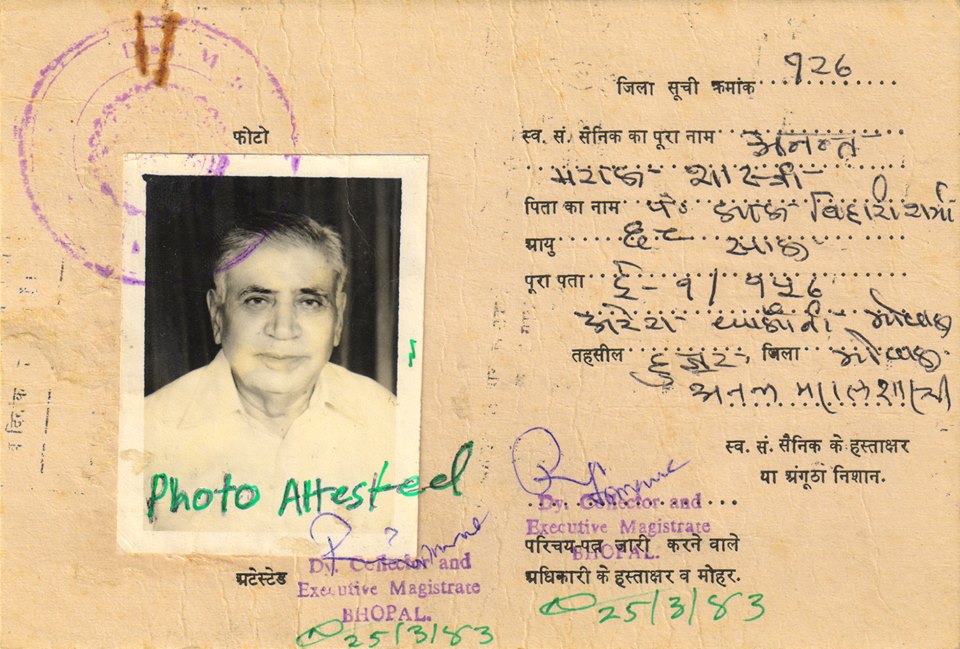 जिला सूची क्रमांक 926
फोटो
स्व. सं. सैनिक का पूरा नाम अनन्त
मराल शास्त्री
पिता का नाम पं० बिहारी शर्मा
आयु साल
पूरा पता ई-१/१५
अरेरा कालोनी भोपाल
तहसील हुजूर जिला भोपाल
अनन्त मराल शास्त्री
स्व. सं. सैनिक के हस्ताक्षर
या अंगूठा निशान.
Photo Attested
Dy. Collector and
Executive Magistrate
BHOPAL.
परिचय-पत्र जारी करने वाले
अधिकारी के हस्ताक्षर व मोहर.
25/3/83
अटेस्टेड
Dy. Collector and
Executive Magistrate
BHOPAL.
25/3/83